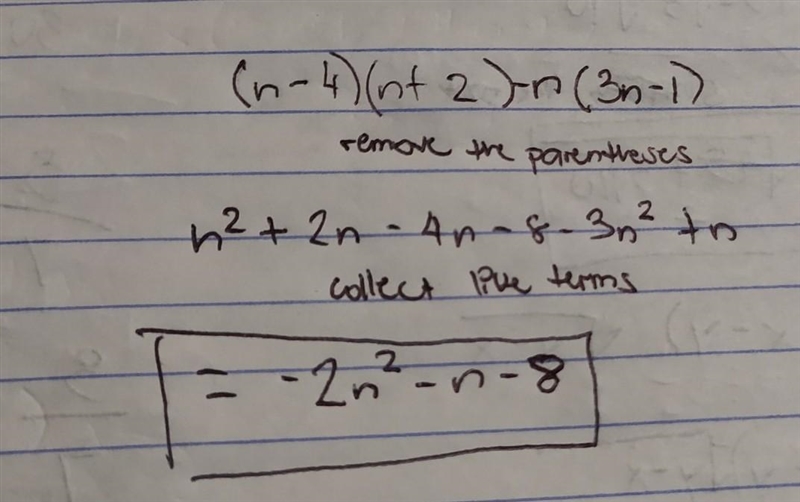 (n-4)(n+2)-n(3n-1)
remove the parentheses
n² + 2n - 4n - 8 - 3n² + n
collect like terms
= -2n² - n - 8